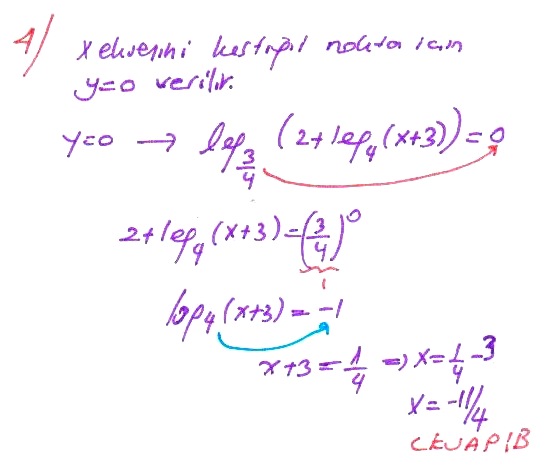 4)
x eksenini kestiği nokta için
y=0 verilir.
y=0 → log_{3/4} (2+log_4(x+3))=0
2+log_4(x+3)=(3/4)^0
1
log_4(x+3)=-1
x+3=1/4 ⇒ x=1/4-3
x=-11/4
CEVAP B